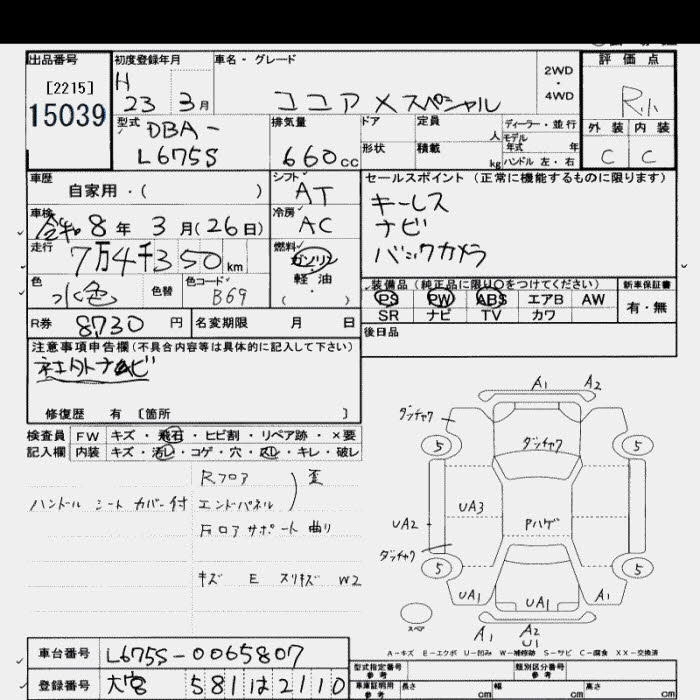 出品番号 初度登録年月 車名・グレード 評価点
[2215] H 2WD
15039 23 3月 ココア X スペシャル ・ 4WD
型式 DBA- 排気量 ドア 定員 人 ディーラー・並行 外装 内装
L675S 660cc 形状 積載 kg モデル年式 年 ハンドル 左・右 C C
車歴 シフト セールスポイント (正常に機能するものに限ります)
自家用・( ) AT キーレス
車検 令和 8年 3月(26日) 冷房 AC ナビ
走行 7万4千350km 燃料 ガソリン バックカメラ
色 水色 色替 色コード B69 軽油 ( ・ )
装備品 (純正品に限り○をつけてください) 新車保証書
PS PW ABS エアB AW 有・無
SR ナビ TV カワ
R券 8730円 名変期限 月 日 後日品
注意事項申告欄(不具合内容等は具体的に記入して下さい)
修復歴 有 〔箇所 〕
検査員 FW キズ・飛石・ヒビ割・リペア跡・×要
記入欄 内装 キズ・汚レ・コゲ・穴・スレ・キレ・破レ
Rフロア 歪
ハンドル シート カバー付 エンドパネル
Fロア サポート 曲り
キズ E スリキズ W2
A1 A2
ダンチャク
5 ダンチャク 5
UA3
UA2 Pハゲ
ダンチャク
5 5
UA1 UA1 A1
スペア A1 A2
U1
A-キズ E-エクボ U-凹み W-補修跡 S-サビ C-腐食 XX-交換済
車台番号 L675S-0065807
型式指定番号 参考 類別区分番号 参考
登録番号 大宮 581 は 2110
車庫証明用 参考 長さ cm 幅 cm 高さ cm